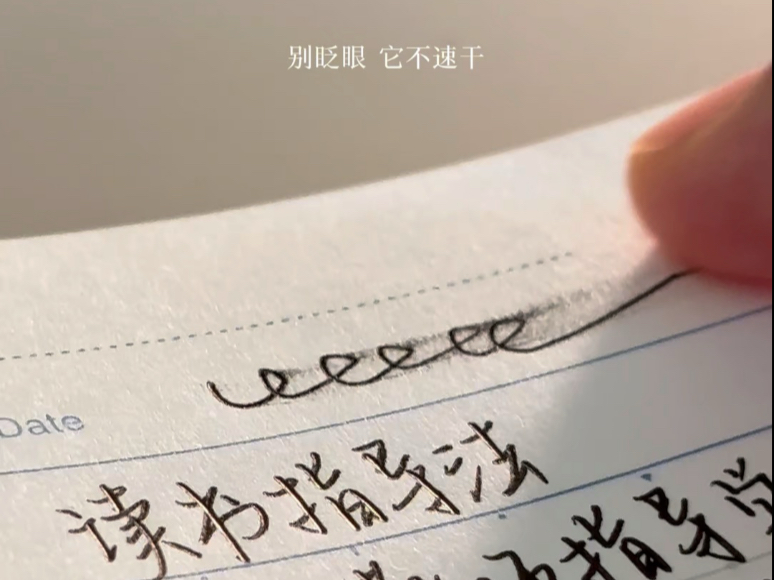 别眨眼 它不速干
Date
读书指导法
指导学